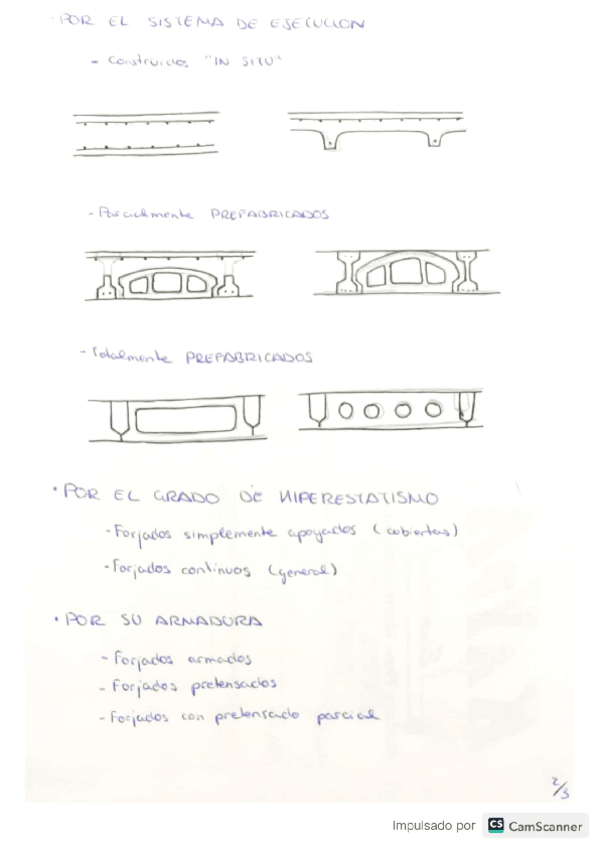 · POR EL SISTEMA DE EJECUCION
- Construidos "IN SITU"
- Parcialmente PREFABRICADOS
- Totalmente PREFABRICADOS
· POR EL GRADO DE HIPERESTATISMO
- Forjados simplemente apoyados (cubiertas)
- Forjados continuos (general)
· POR SU ARMADURA
- Forjados armados
- Forjados pretensados
- Forjados con pretensado parcial
2/3
Impulsado por CS CamScanner